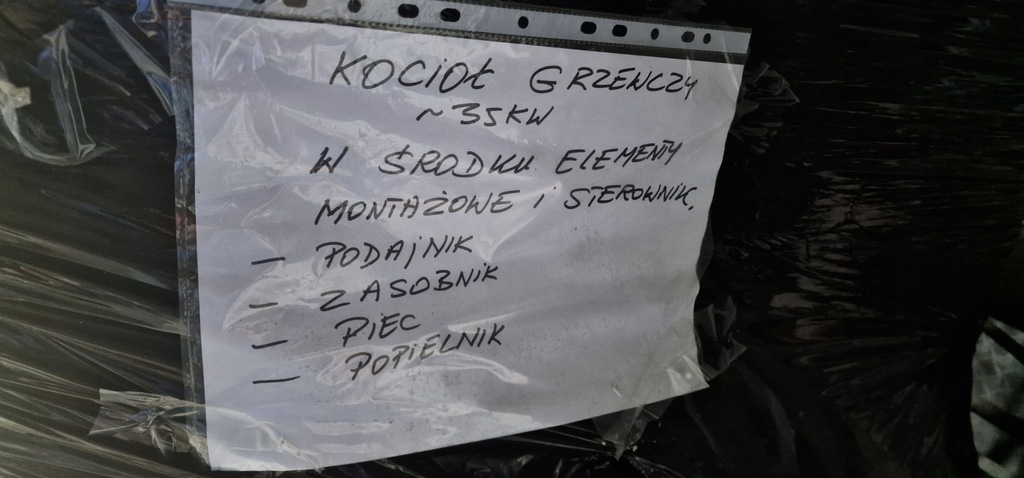 KOCIOŁ GRZENCZY
~35KW
W ŚRODKU ELEMENTY
MONTAŻOWE i STEROWNIK.
— PODAJNIK
— ZASOBNIK
— PIEC
— POPIELNIK